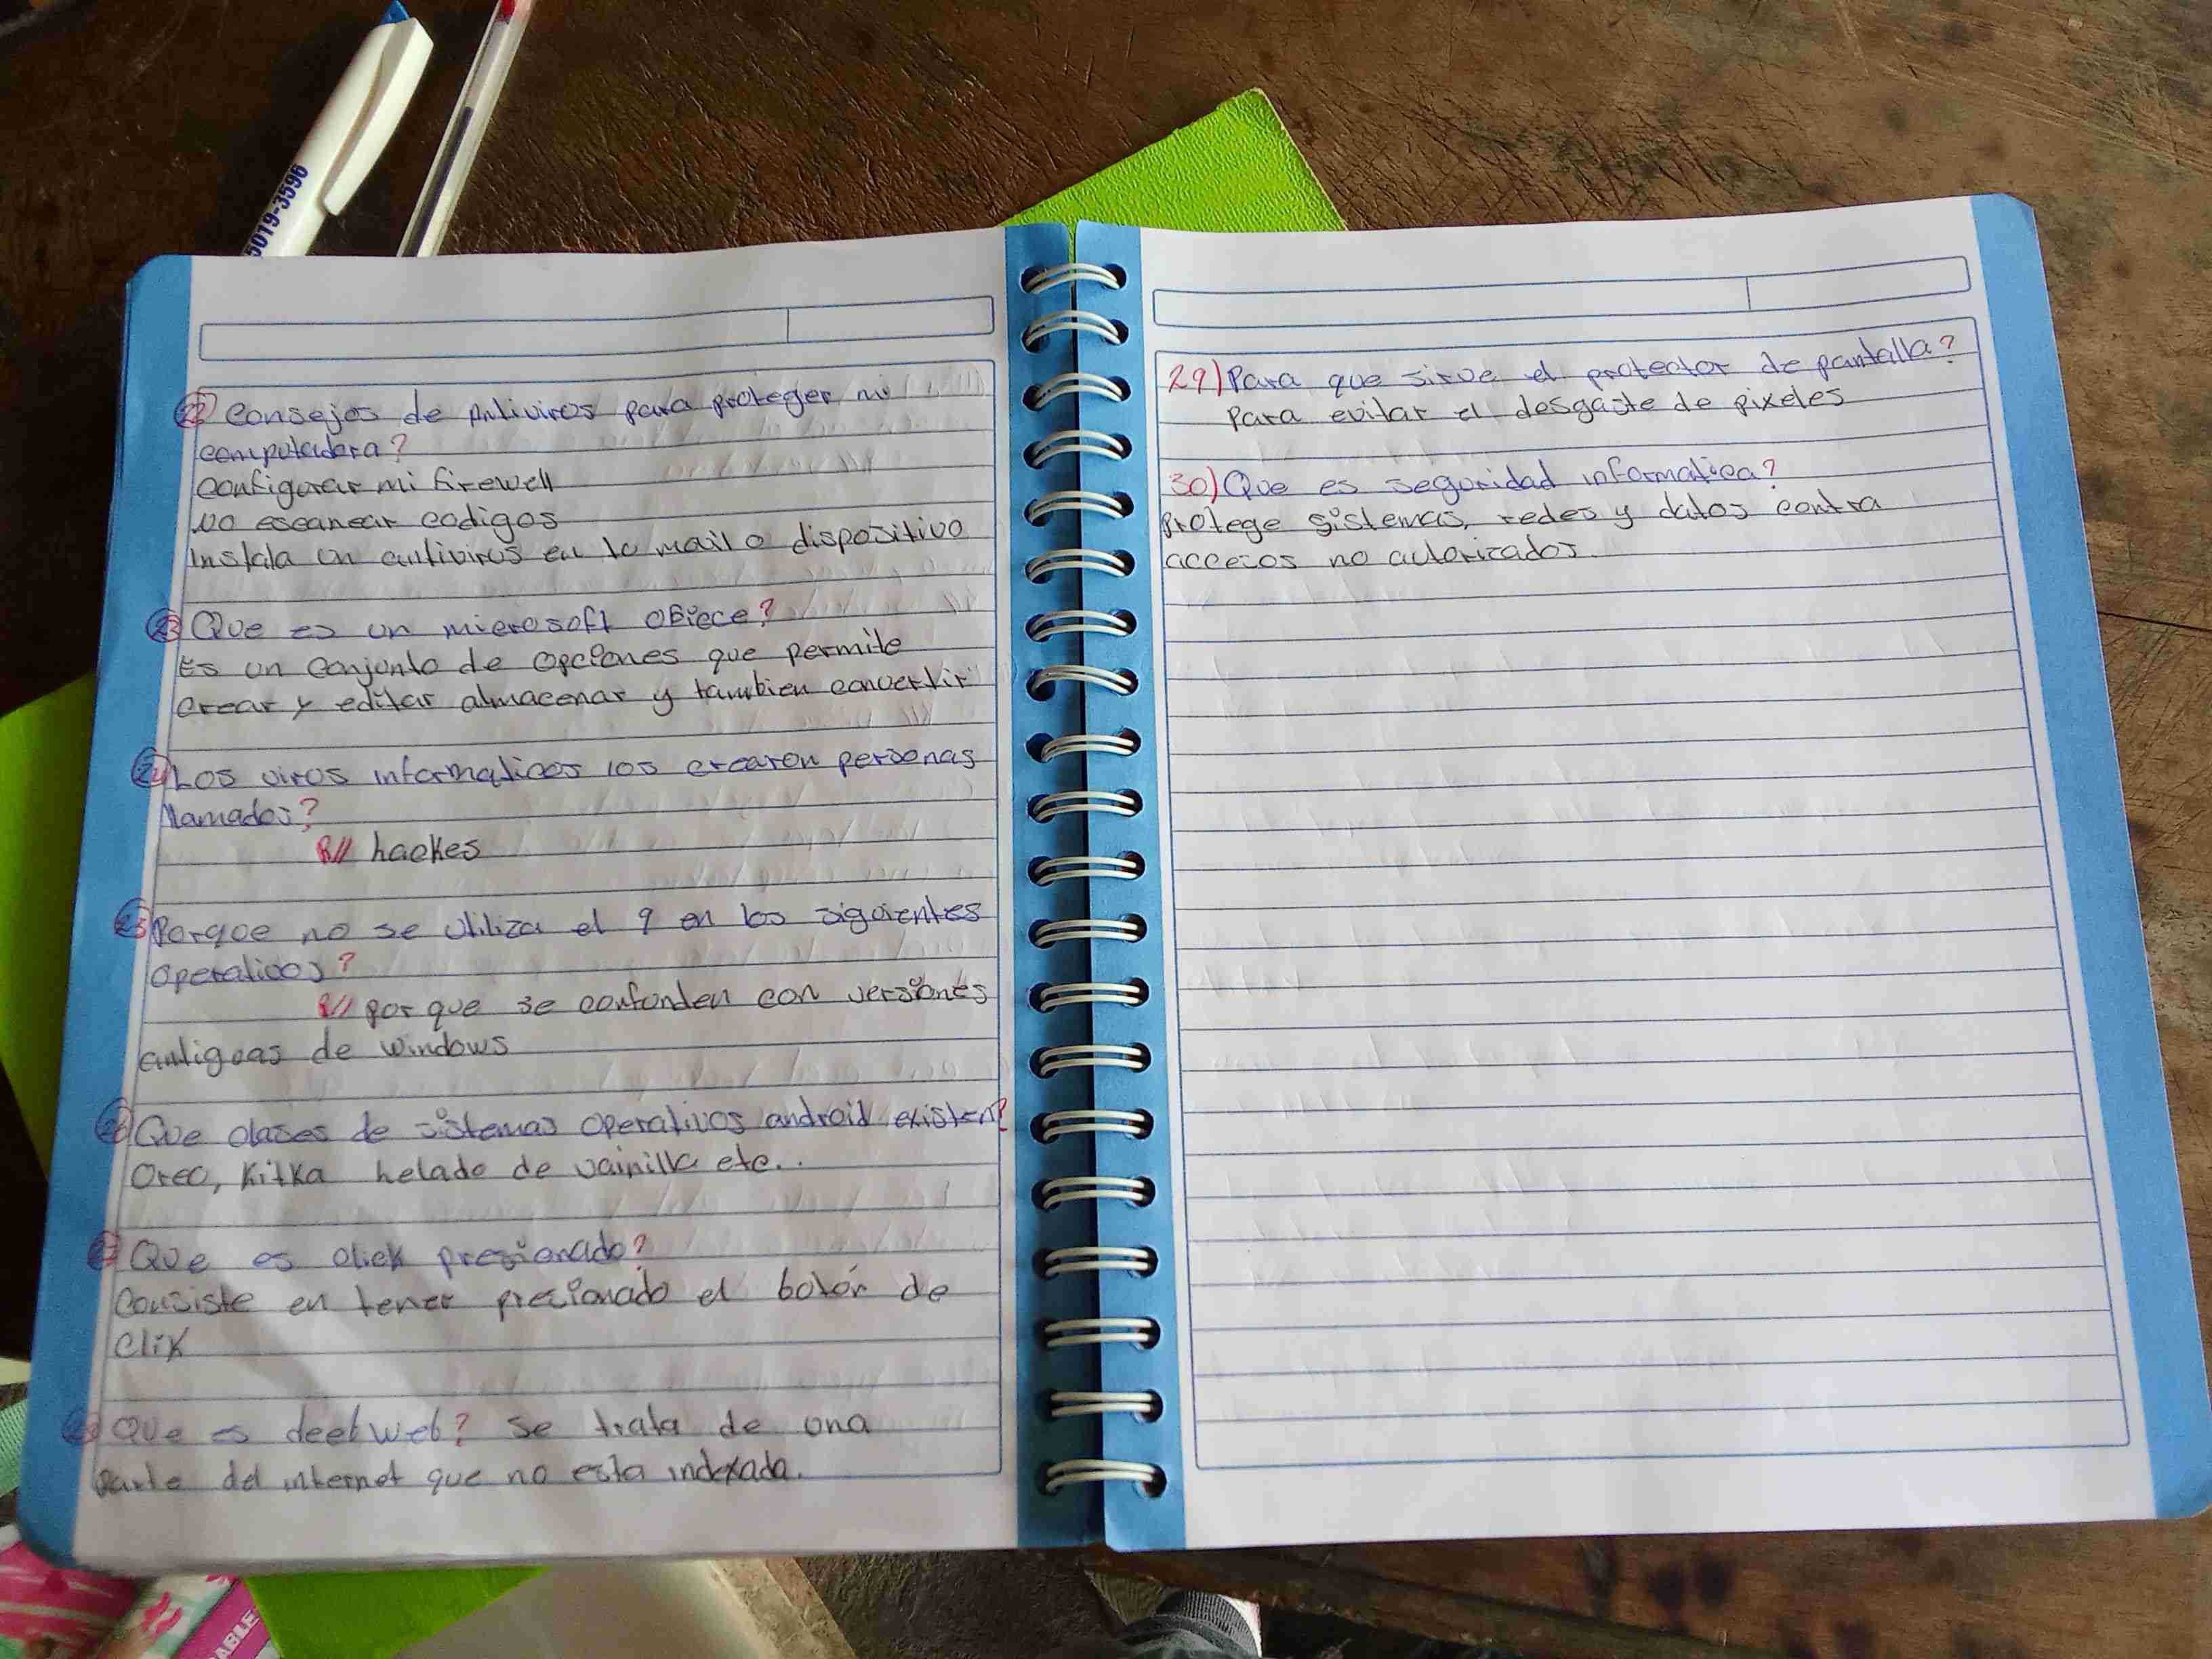 5019-3596
22 Consejos de Antivirus para proteger mi
computadora?
Configurar mi firewell
No escanear codigos
Instala un antivirus en tu mail o dispositivo
23 Que es un microsoft ofiece?
Es un conjunto de opciones que permite
crear y editar almacenar y tambien convertir
24 Los virus informaticos los crearon personas
llamados?
R// hackes
25 Porque no se utiliza el 9 en los siguientes
operativos?
R// por que se confunden con versiones
antiguas de windows
26 Que clases de sistemas operativos android existen?
Oreo, Kitka helado de vainilla etc..
27 Que es click presionado?
Consiste en tener presionado el botón de
clik
28 Que es deebweb? Se trata de una
parte del internet que no esta indexada.
29) Para que sirve el protector de pantalla?
Para evitar el desgaste de pixeles
30) Que es seguridad informatica?
Protege sistemas, redes y datos contra
accesos no autorizados.
ABLE